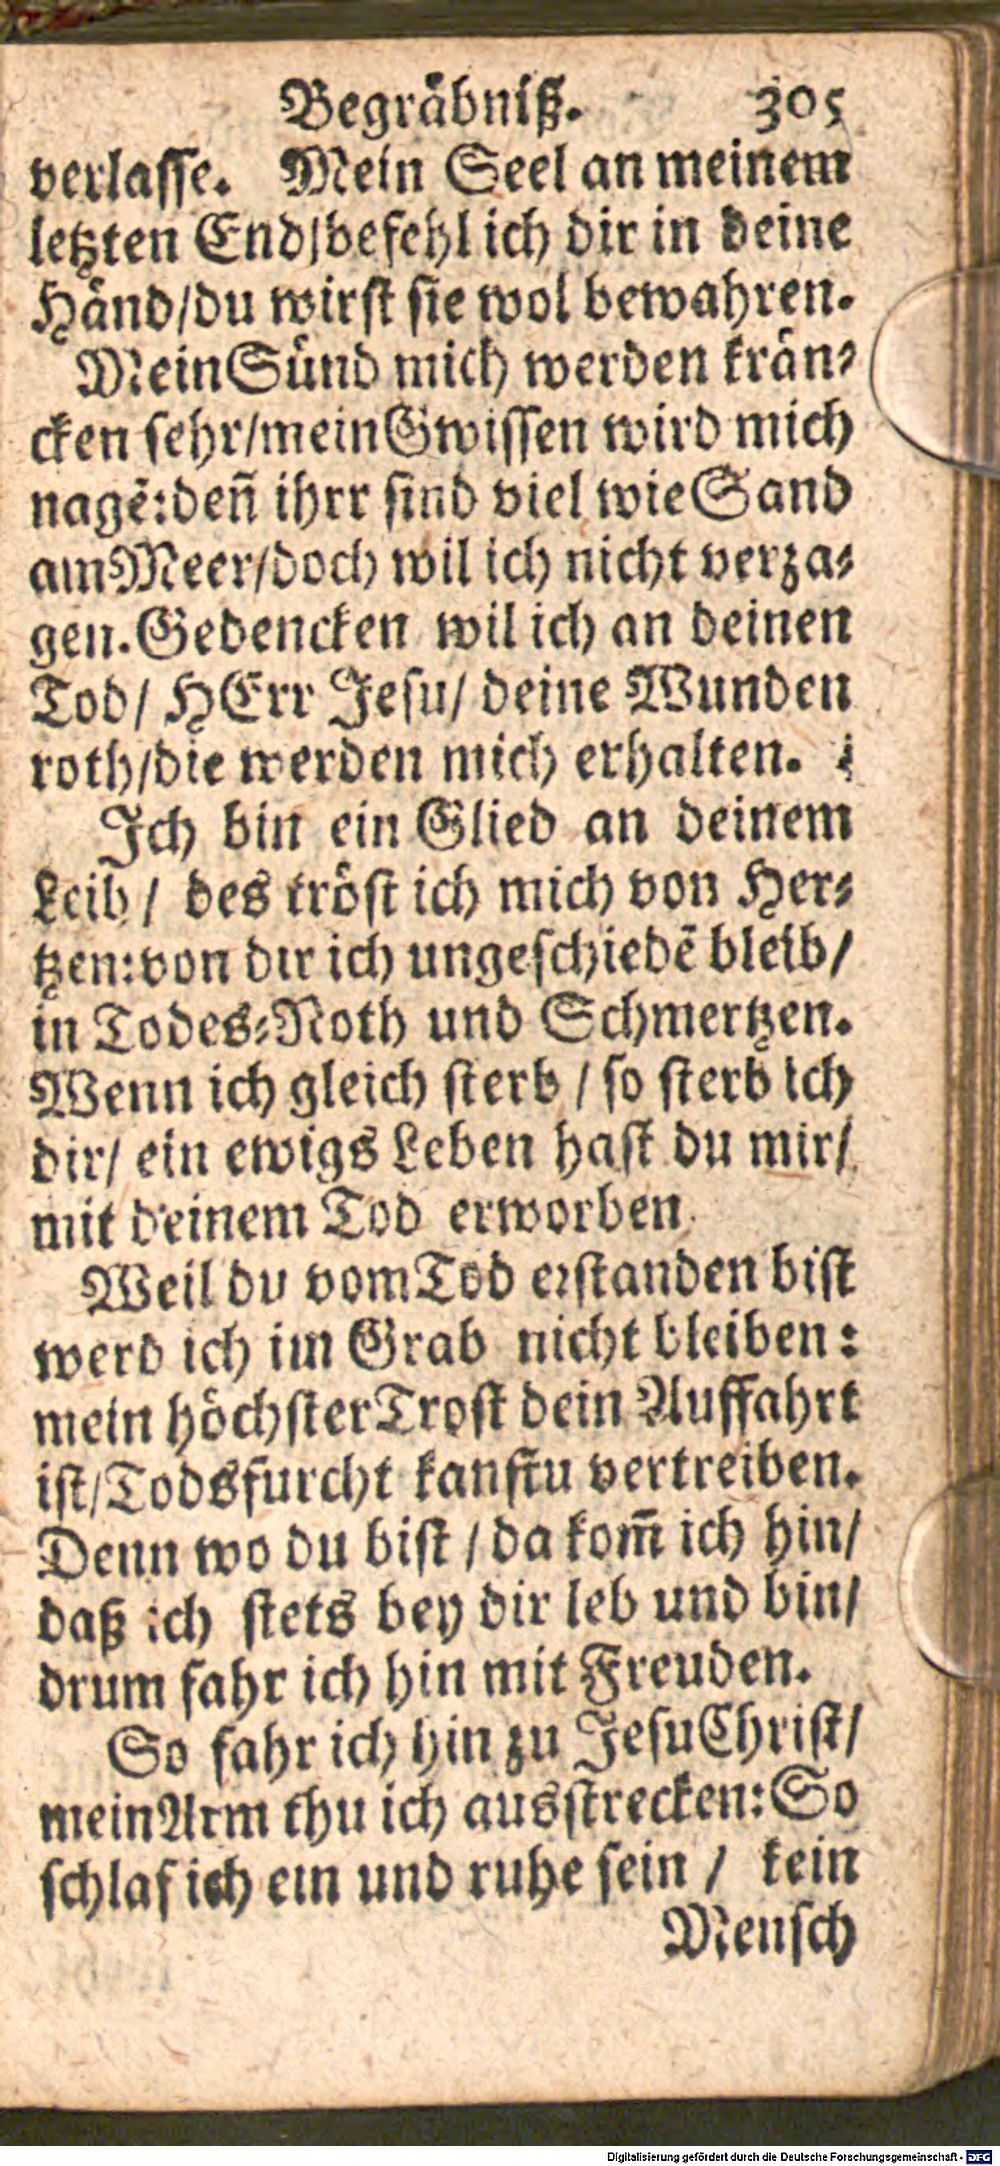 Begräbniß. 305
verlasse. Mein Seel an meinem
letzten End/befehl ich dir in deine
Händ/du wirst sie wol bewahren.
Mein Sünd mich werden krän-
cken sehr/mein Gwissen wird mich
nagẽ:deñ ihrr sind viel wie Sand
am Meer/doch wil ich nicht verza-
gen. Gedencken wil ich an deinen
Tod/ HErr Jesu/ deine Wunden
roth/die werden mich erhalten.
Ich bin ein Glied an deinem
Leib/ des tröst ich mich von Her-
tzen:von dir ich ungeschiedẽ bleib/
in Todes-Noth und Schmertzen.
Wenn ich gleich sterb / so sterb ich
dir/ ein ewigs Leben hast du mir/
mit deinem Tod erworben.
Weil du vom Tod erstanden bist
werd ich im Grab nicht bleiben:
mein höchster Trost dein Auffahrt
ist/Todsfurcht kanstu vertreiben.
Denn wo du bist / da kom̃ ich hin/
daß ich stets bey dir leb und bin/
drum fahr ich hin mit Freuden.
So fahr ich hin zu Jesu Christ/
mein Arm thu ich ausstrecken: So
schlaf ich ein und ruhe sein / kein
Mensch
Digitalisierung gefördert durch die Deutsche Forschungsgemeinschaft - DFG